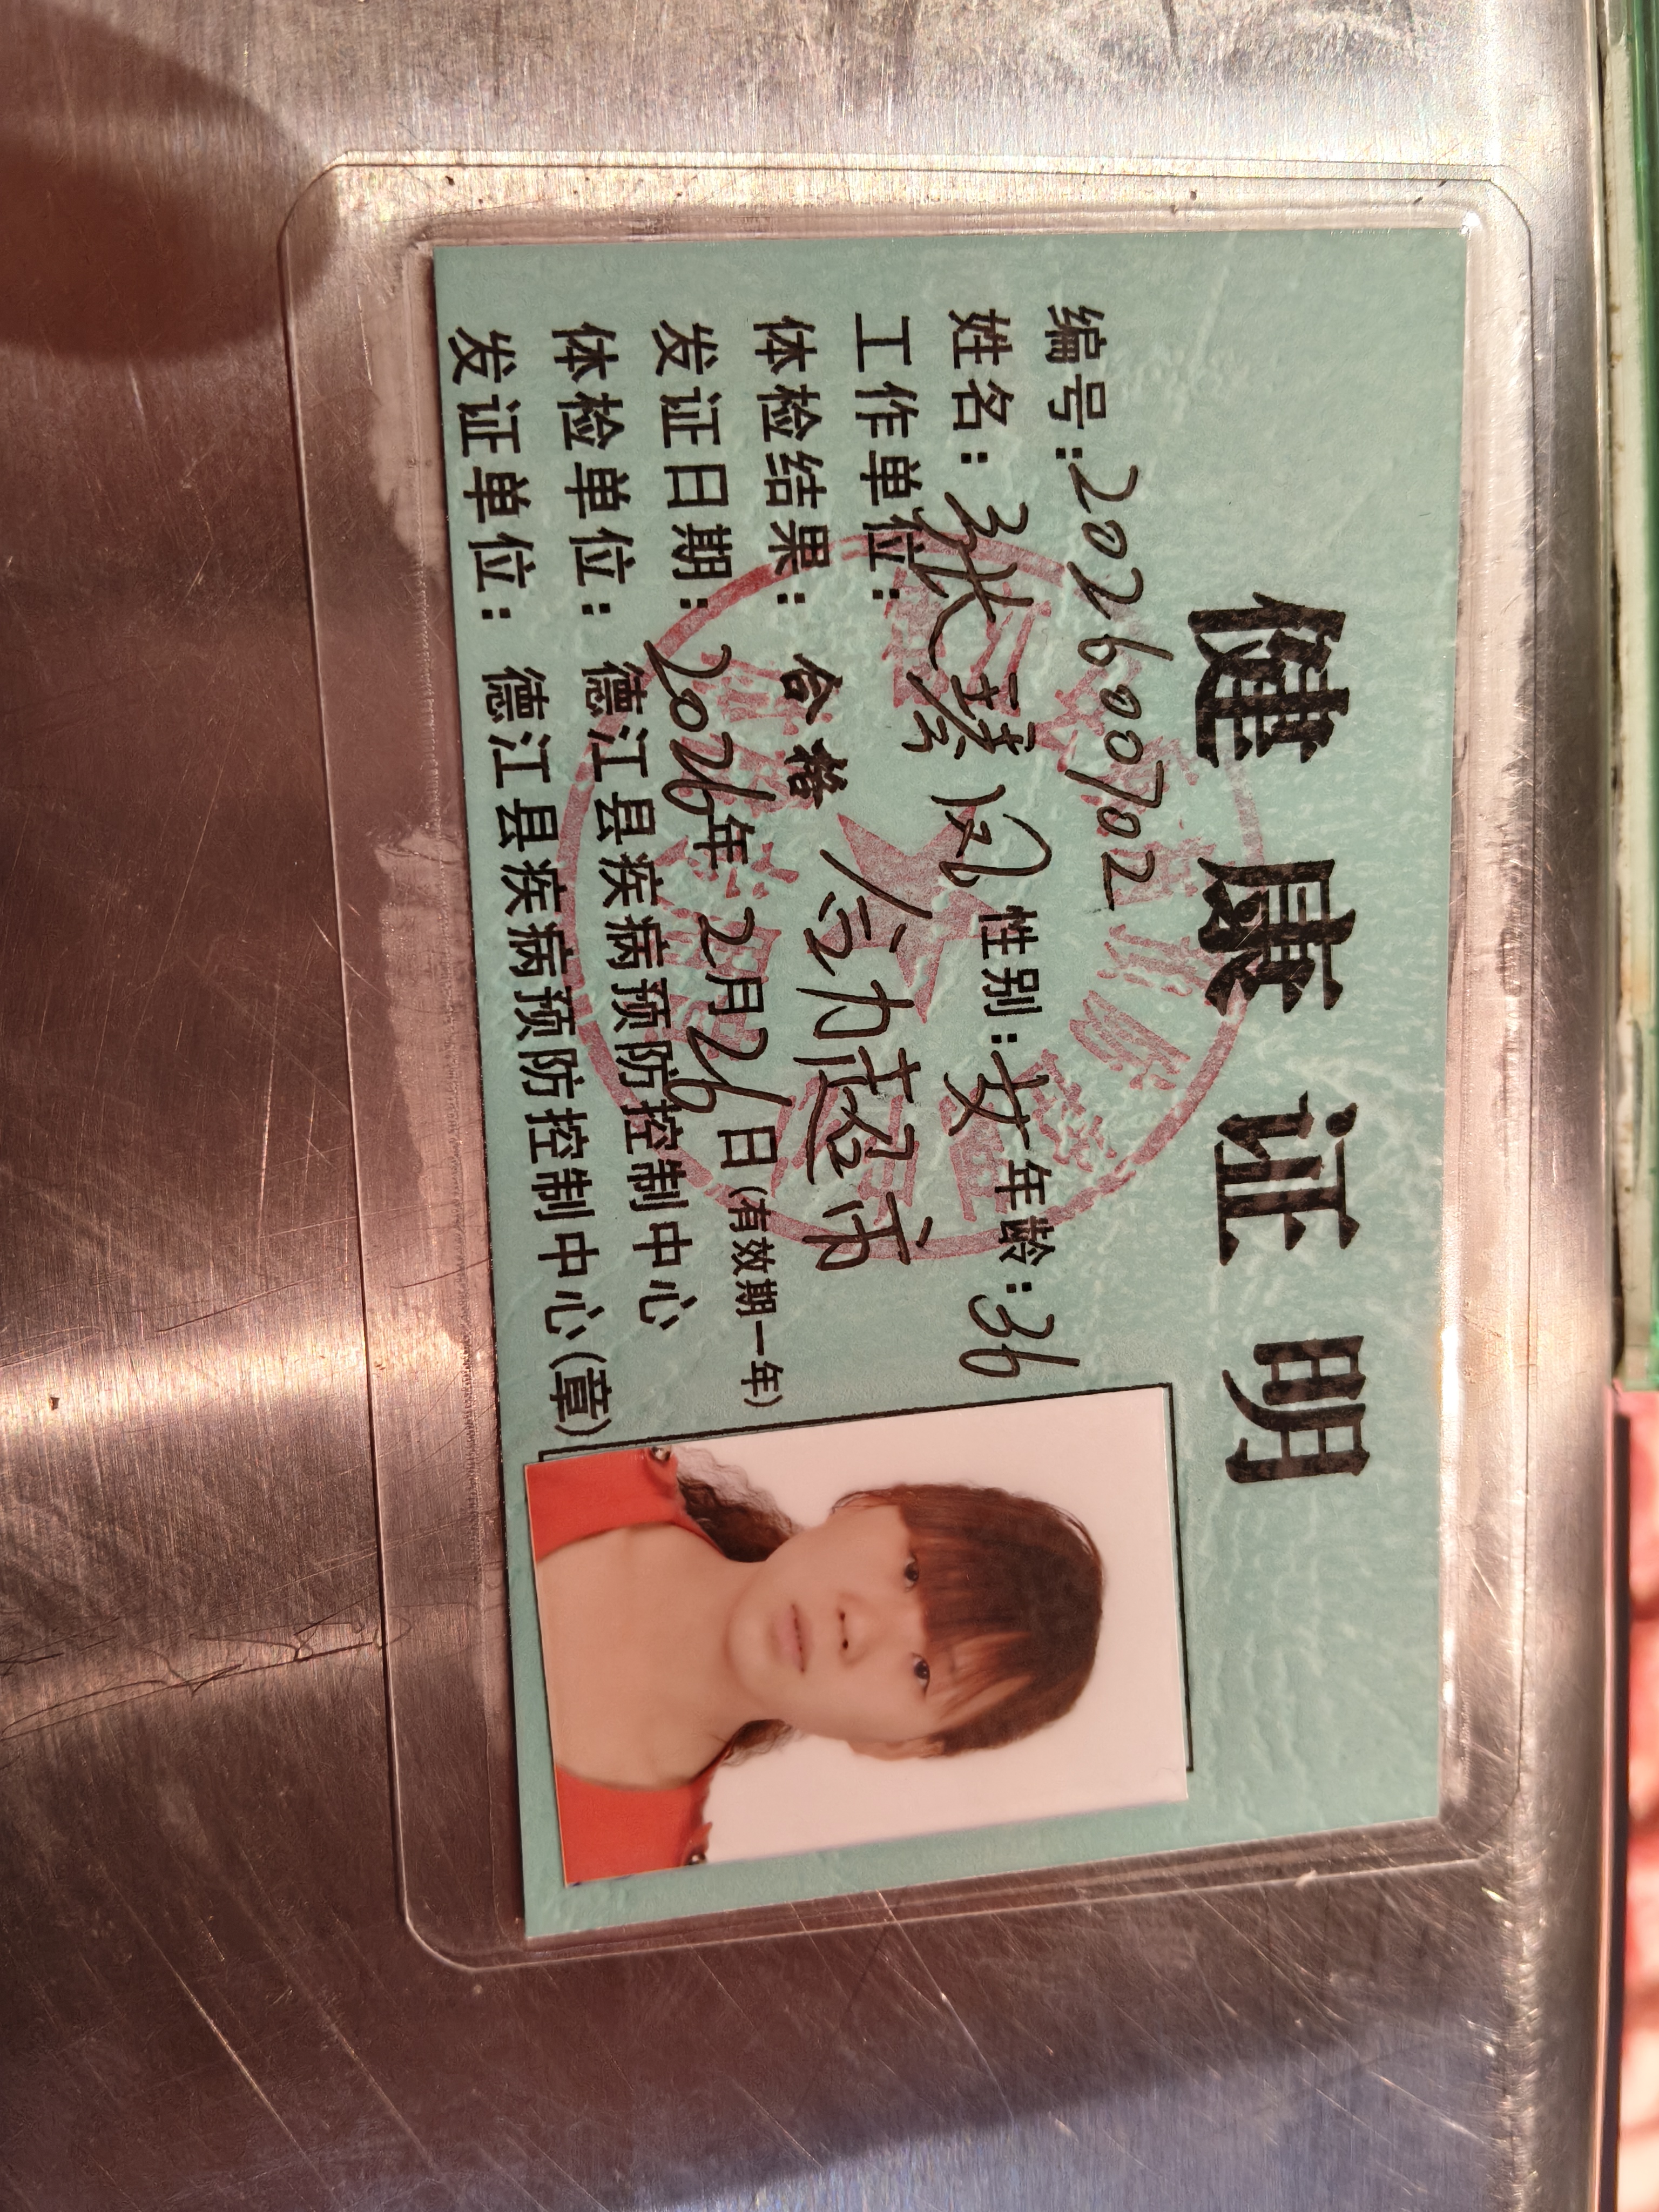 健康证明
编号:202600702
姓名:张琴凤 性别:女 年龄:36
工作单位: 合力超市
体检结果: 合格
发证日期:2026年2月26日(有效期一年)
体检单位: 德江县疾病预防控制中心
发证单位: 德江县疾病预防控制中心(章)